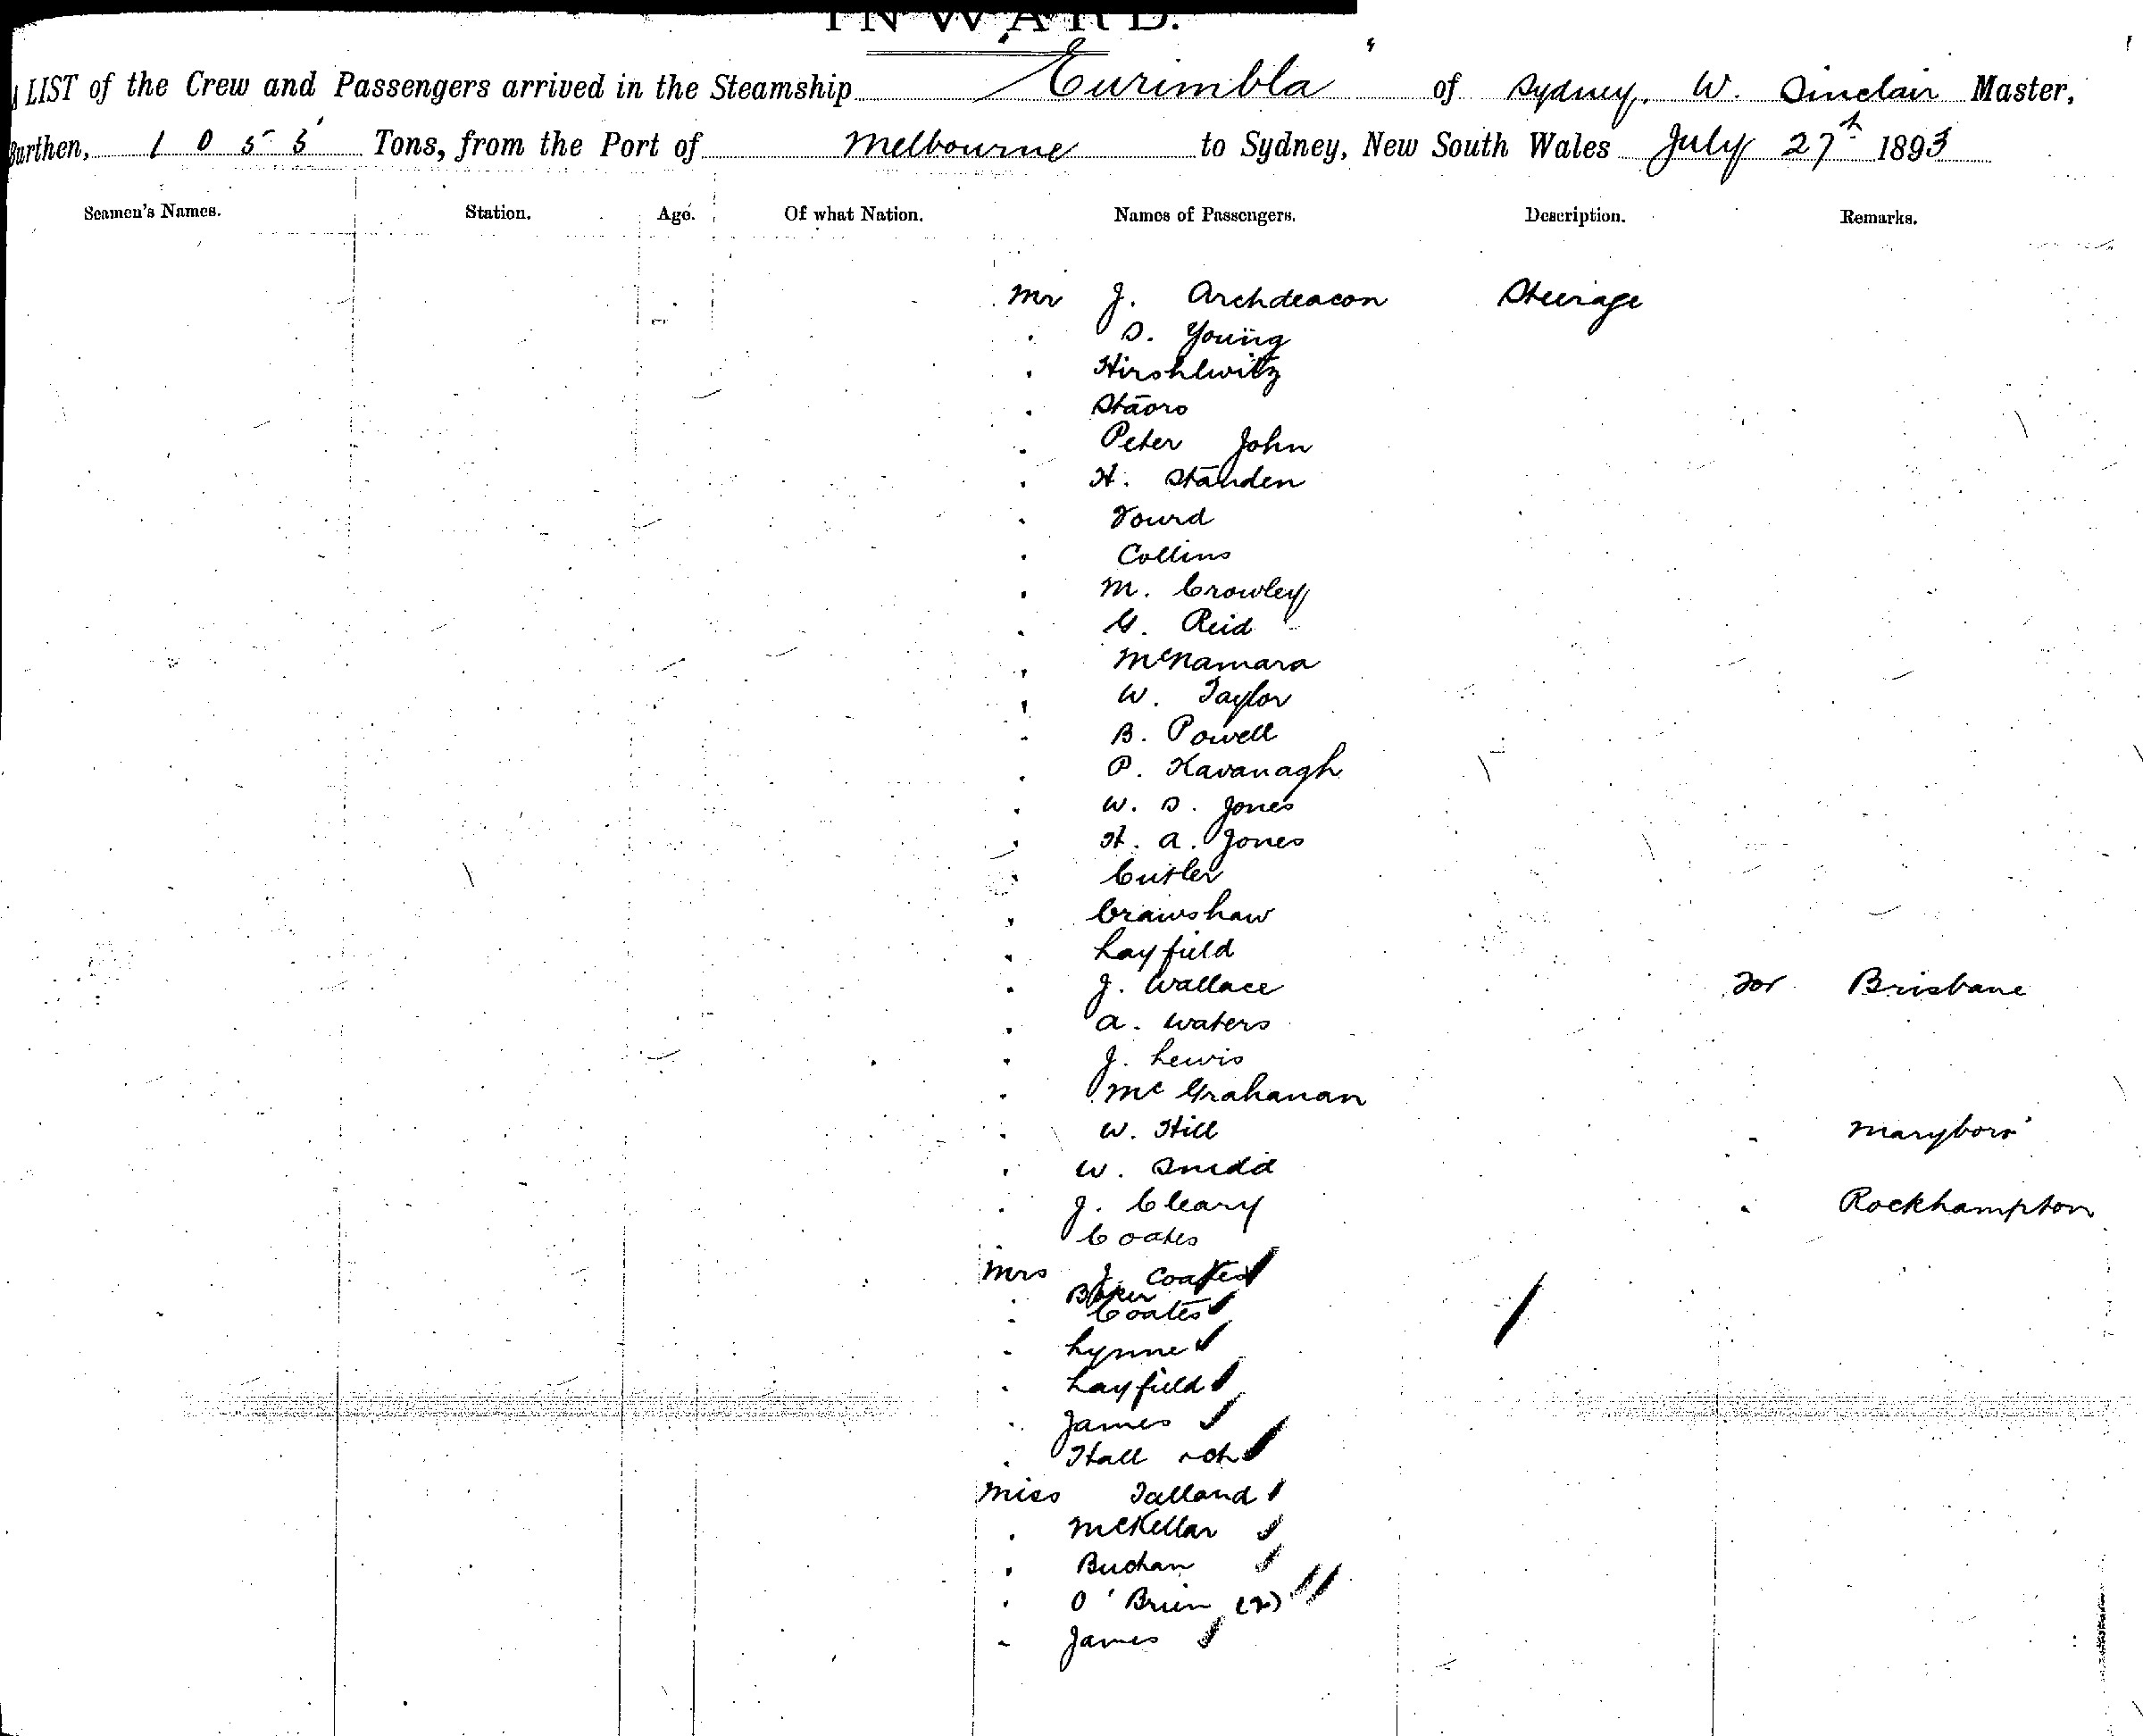 INWARD.
LIST of the Crew and Passengers arrived in the Steamship Eurimbla of Sydney, W. Sinclair Master,
Burthen, 1055 Tons, from the Port of Melbourne to Sydney, New South Wales July 27th 1893
Seamen's Names. Station. Age. Of what Nation. Names of Passengers. Description. Remarks.
Mr J. Archdeacon Steerage
. S. Young
. Hirshlwitz
. Peter John
. H. Standen
. Collins
. M. Crowley
. G. Reid
. McNamara
. W. Taylor
. B. Powell
. P. Kavanagh
. W. S. Jones
. H. A. Jones
. Cutler
. Crawshaw
. Layfield
. J. Wallace For Brisbane
. A. Waters
. J. Lewis
. Mc Grahanan
. W. Hill " Maryboro'
. W.
. J. Cleary " Rockhampton
. Coates
Mrs J. Coates
. Baker
. Coates
. Lynne
. Layfield
. James
. Hall
Miss Talland
. McKellar
. Buchan
. O'Brien (2)
. James